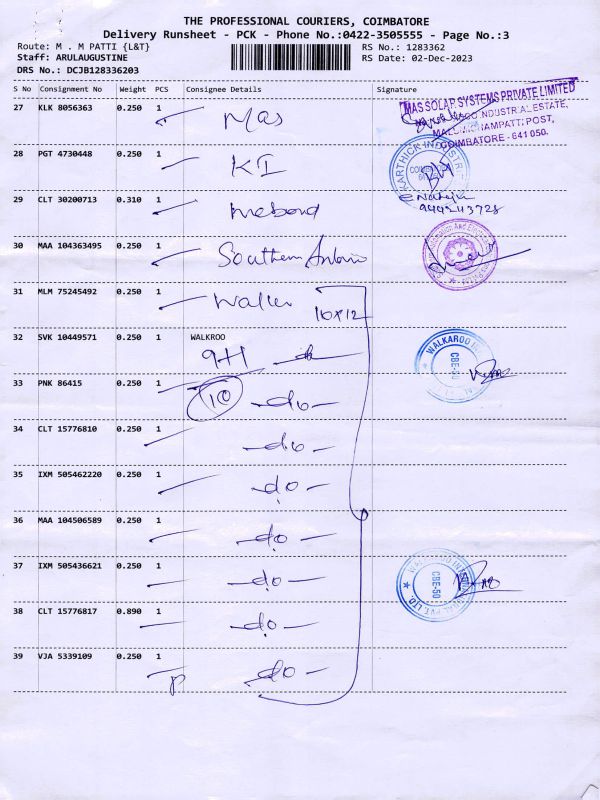 THE PROFESSIONAL COURIERS, COIMBATORE
Delivery Runsheet - PCK - Phone No.:0422-3505555 - Page No.:3
Route: M . M PATTI {L&T}
RS No.: 1283362
Staff: ARULAUGUSTINE
RS Date: 02-Dec-2023
DRS No.: DCJB128336203
S No Consignment No Weight PCS Consignee Details Signature
27 KLK 8056363 0.250 1 Mas
MAS SOLAR SYSTEMS PRIVATE LIMITED
INDUSTRIAL ESTATE,
MALUMICHAMPATTI POST,
COIMBATORE - 641 050.
28 PGT 4730448 0.250 1 KI
KARTHICK
29 CLT 30200713 0.310 1
9442243728
30 MAA 104363495 0.250 1 Southern
31 MLM 75245492 0.250 1
16x12
32 SVK 10449571 0.250 1 WALKROO
9+1
WALKAROO
CBE-50
33 PNK 86415 0.250 1 10 -do-
34 CLT 15776810 0.250 1 -do-
35 IXM 505462220 0.250 1 -do-
36 MAA 104506589 0.250 1 -do-
37 IXM 505436621 0.250 1 -do-
WALKAROO INTERNATIONAL PVT. LTD.
CBE-50
38 CLT 15776817 0.890 1 -do-
39 VJA 5339109 0.250 1 -do-